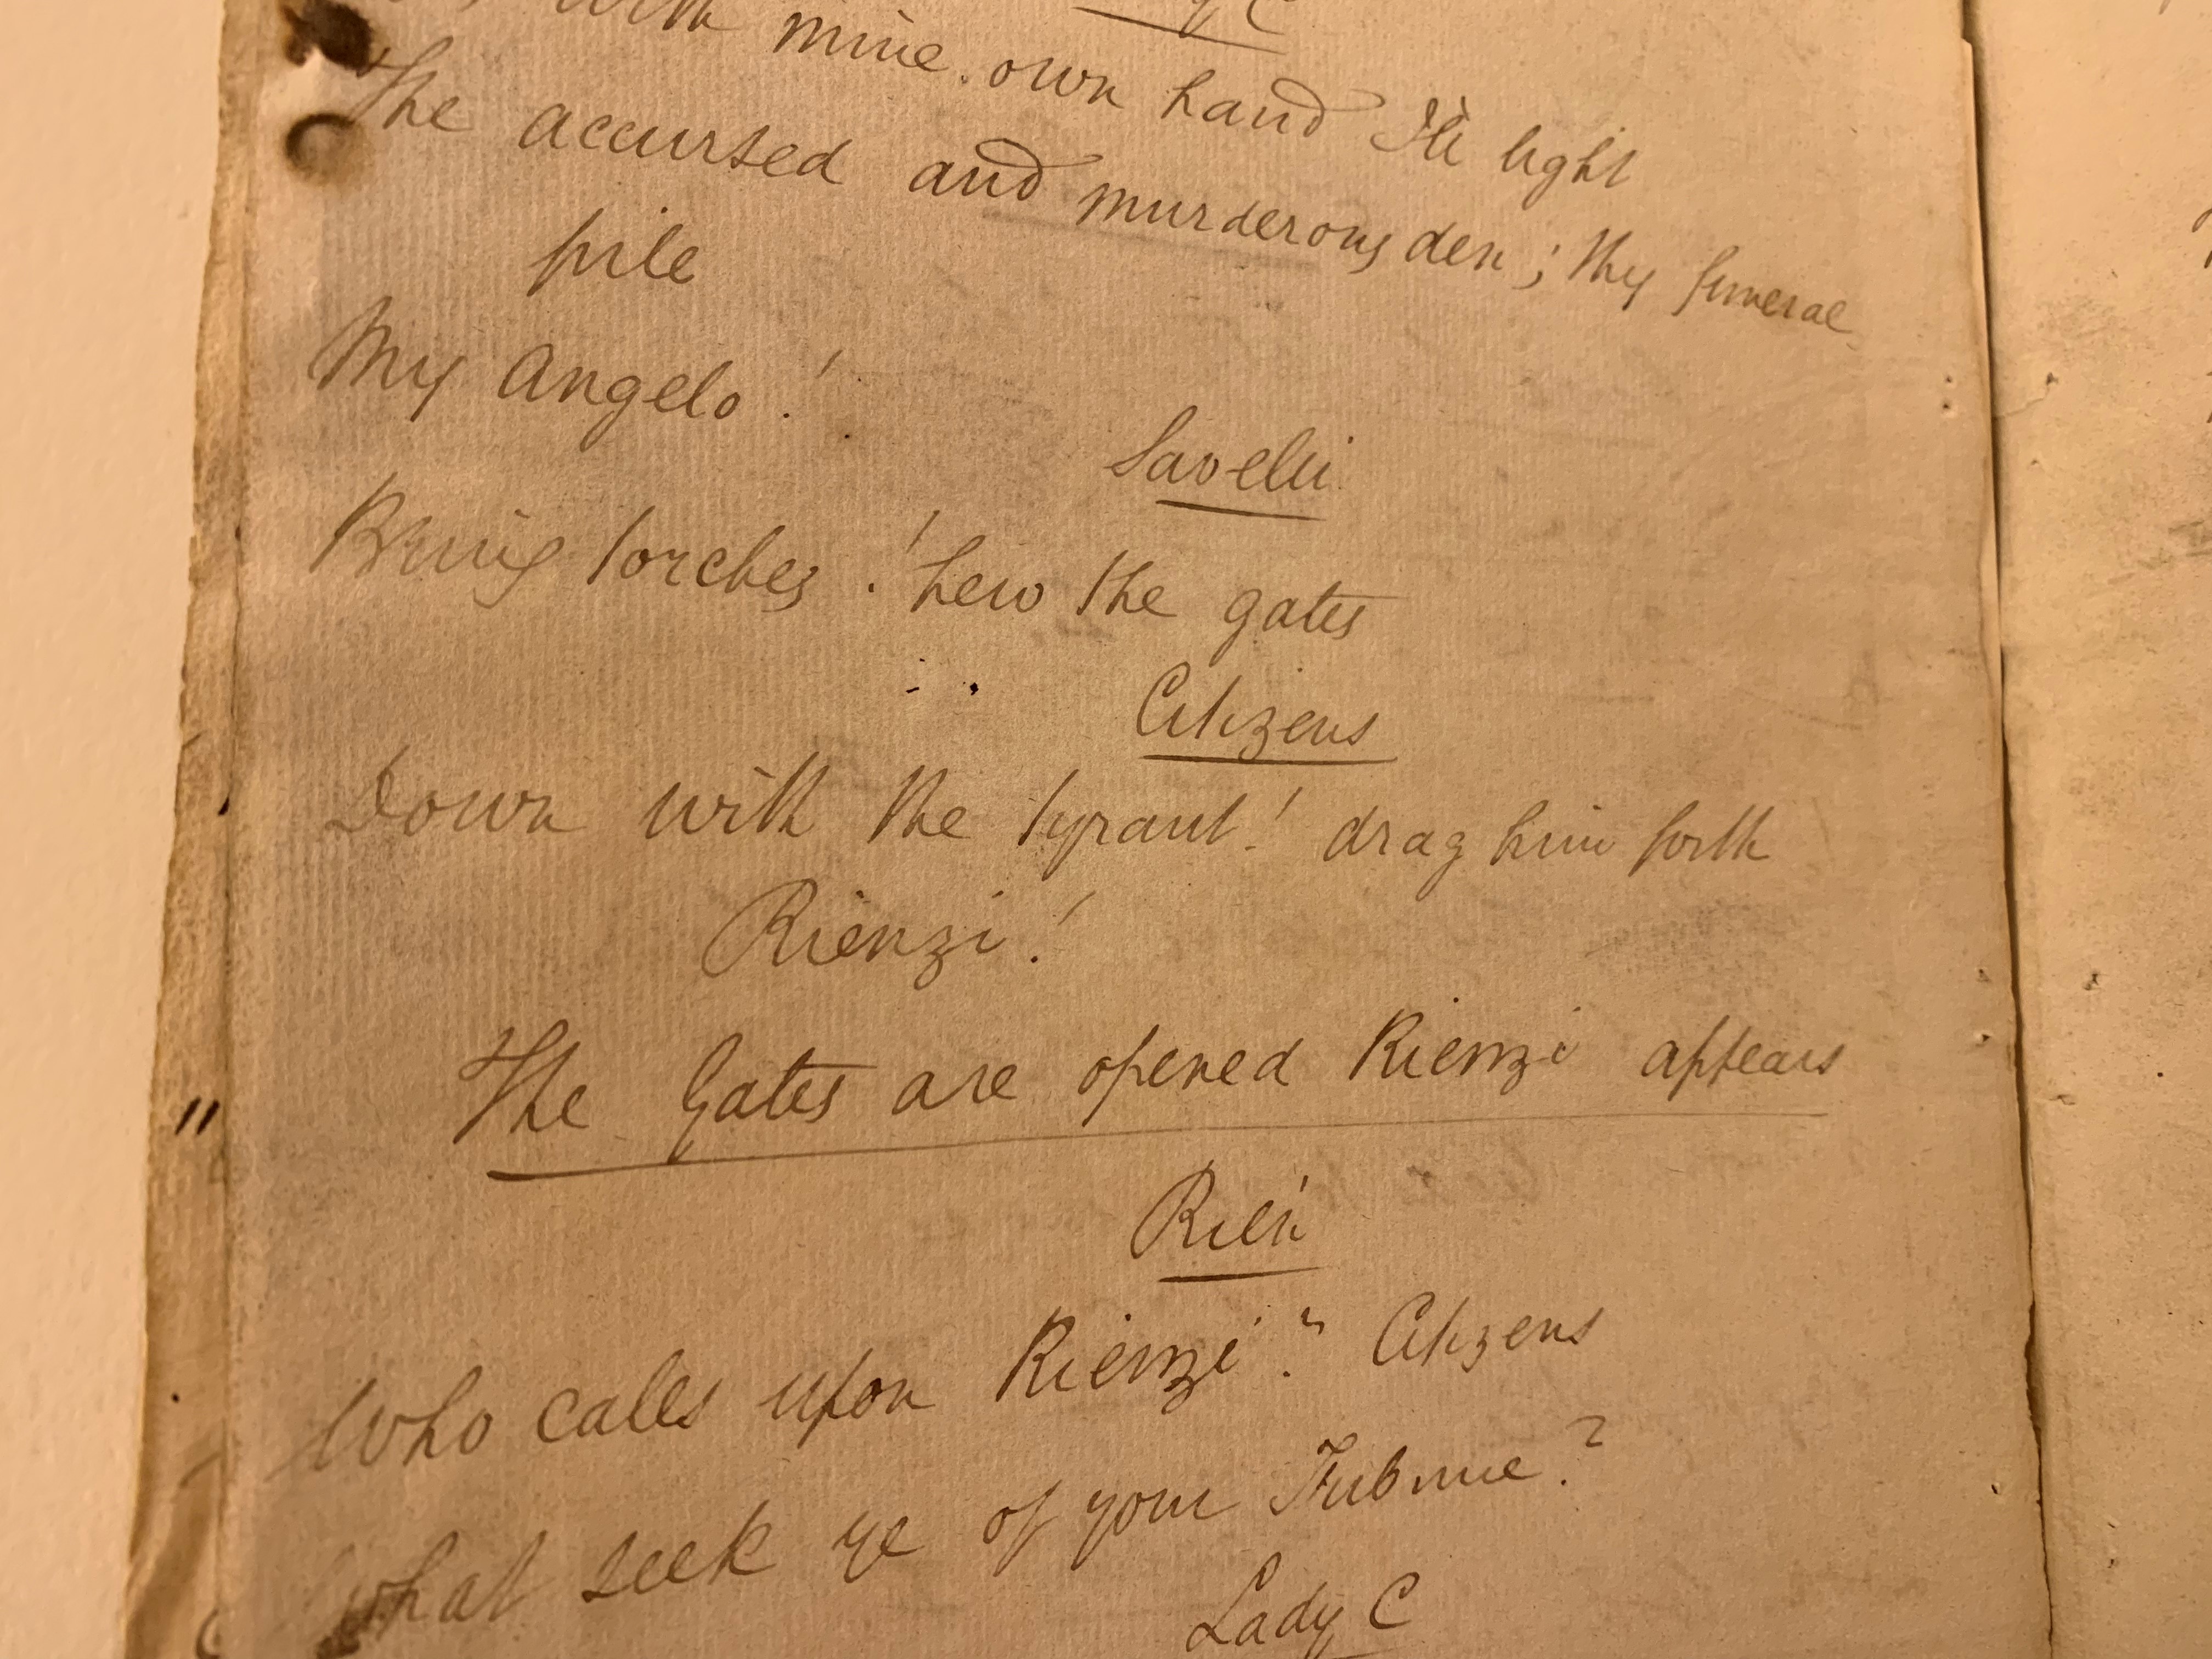 with mine own hand I'll light
The accursed and murderous den; thy funeral
pile
My Angelo!
Savelli
Bring torches! hew the gates
Citizens
Down with the tyrant! drag him forth
Rienzi!
The Gates are opened Rienzi appears
Rien
Who calls upon Rienzi? Citizens
What seek ye of your Tribune?
Lady C